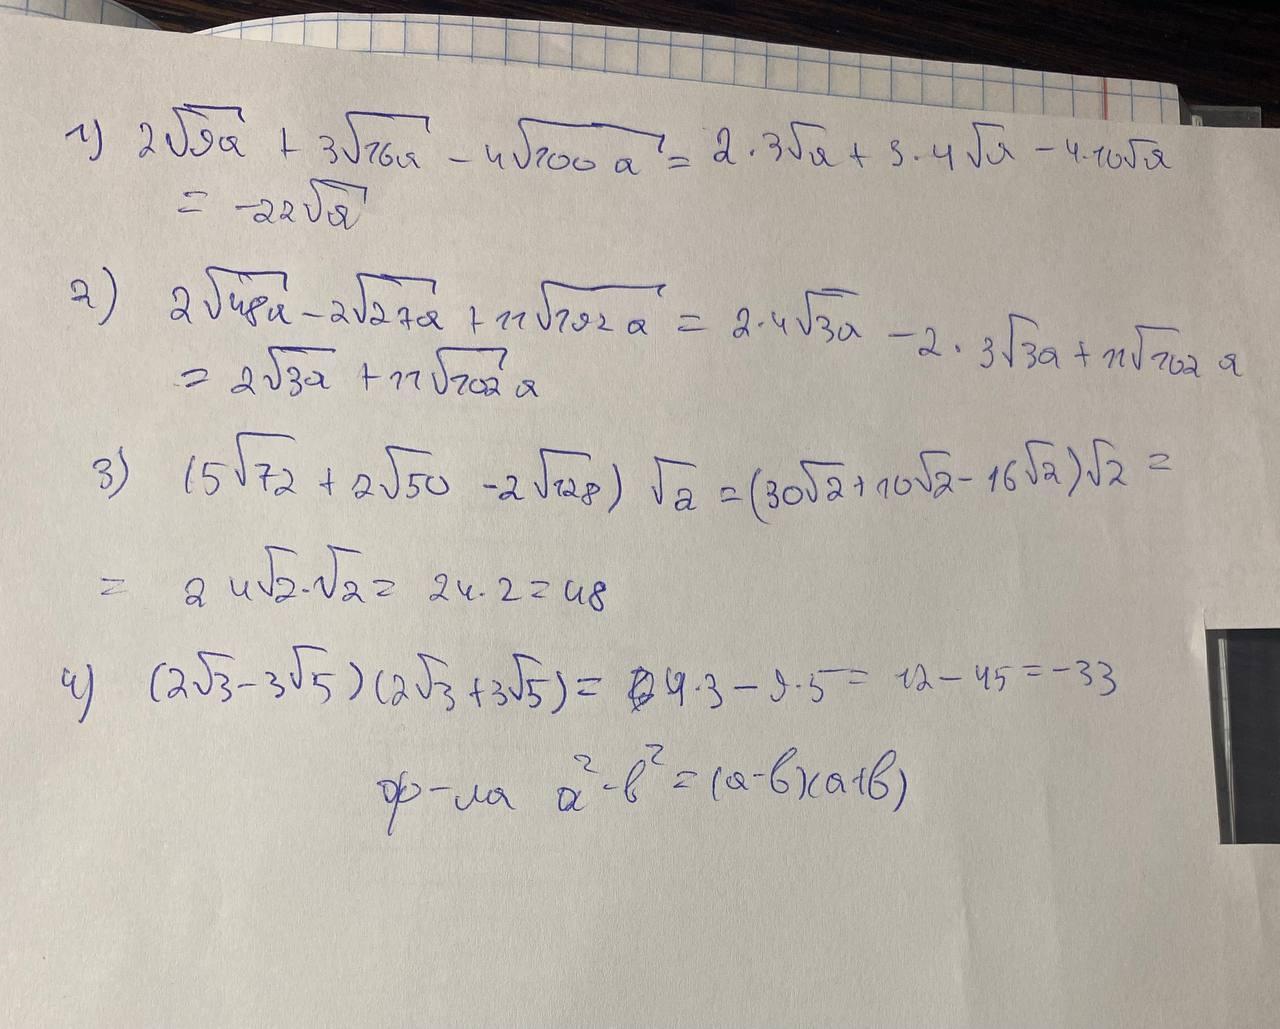 1) 2√9a + 3√16a - 4√100a = 2·3√a + 3·4√a - 4·10√a
= -22√a
2) 2√48a - 2√27a + 11√192a = 2·4√3a - 2·3√3a + 11√102a
= 2√3a + 11√102a
3) (5√72 + 2√50 - 2√128) √2 = (30√2 + 10√2 - 16√2)√2 =
= 24√2·√2 = 24·2 = 48
4) (2√3 - 3√5)(2√3 + 3√5) = 4·3 - 9·5 = 12 - 45 = -33
ф-ла a² - b² = (a - b)(a + b)